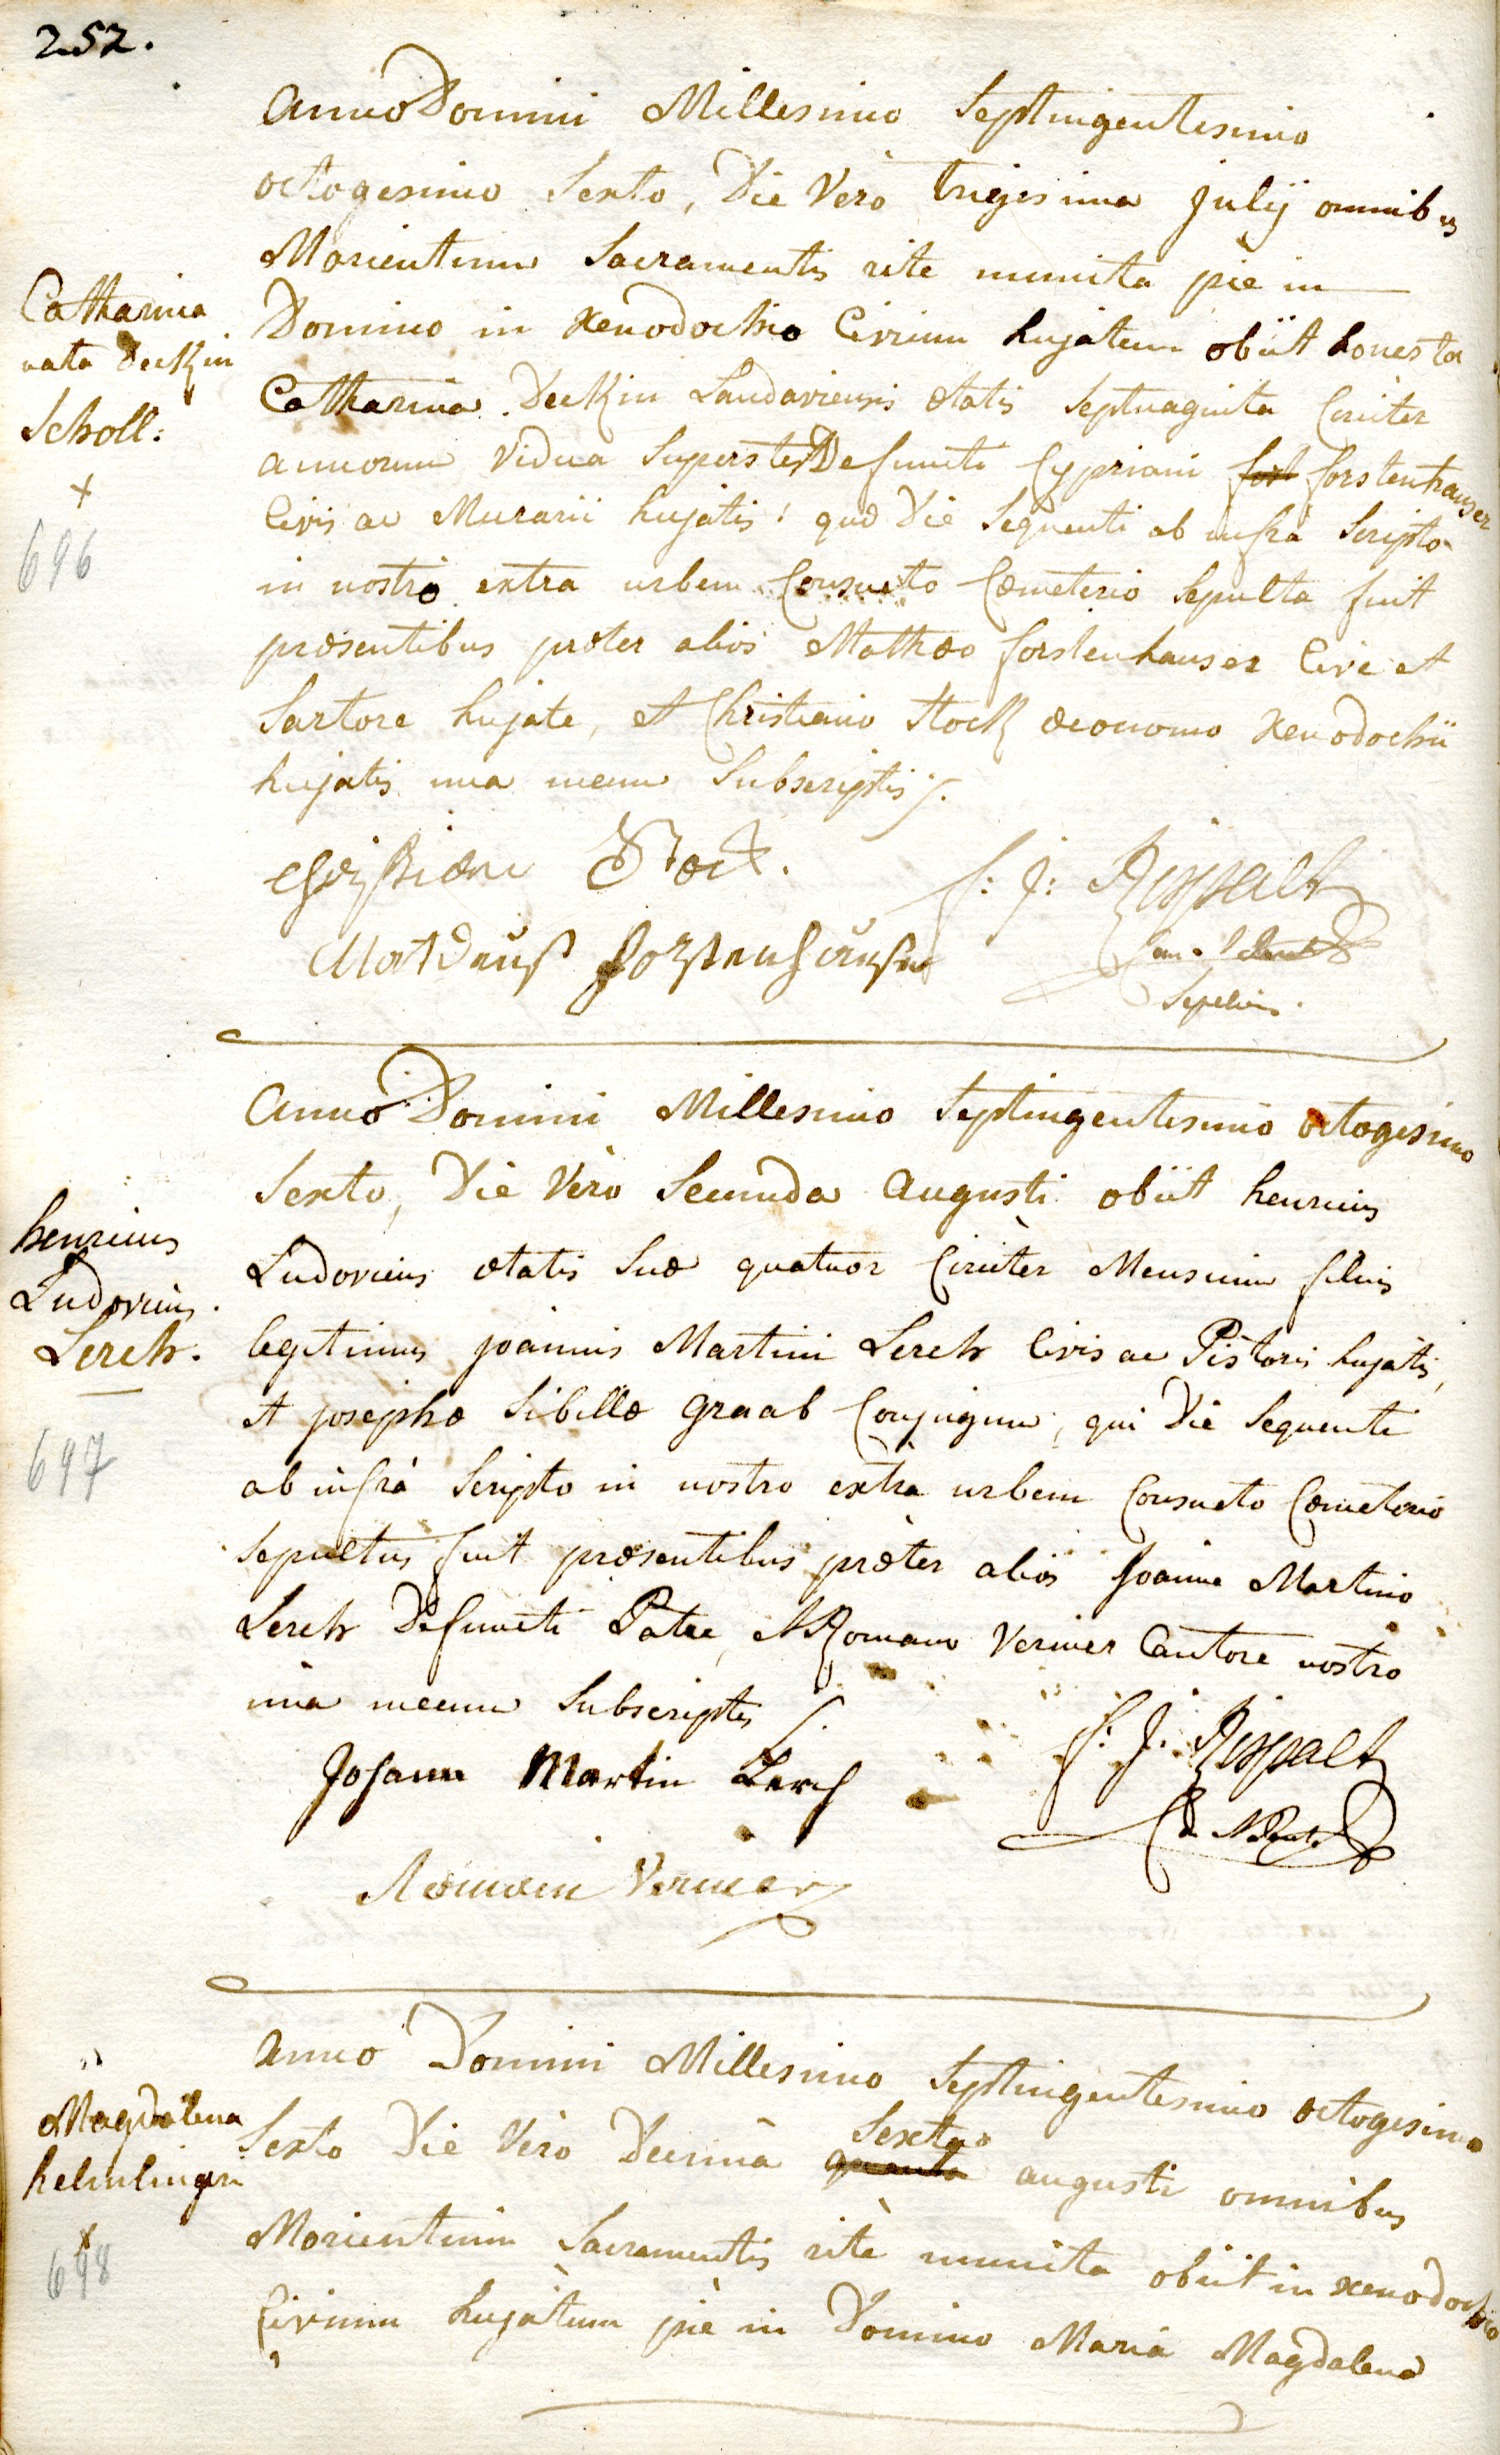 252.
Anno Domini Millesimo Septingentesimo
octogesimo Sexto, Die Vero trigesima julij omnibus
Morientium Sacramentis rite munita pie in
Catharina
nata Deckin
Scholl:
+
696
Domino in Xenodochio Civium hujatum obiit honesta
Catharina Deckin Landaviensis ætatis Septuaginta Circiter
annorum Vidua Superstes Defuncti Cypriani forstenhauser
Civis ac Murarii hujatis: quæ Die Sequenti ab infra Scripto
in nostro extra urbem Consueto Cœmeterio Sepulta fuit
præsentibus præter alios Mathæo forstenhauser Cive et
Sartore hujate, et Christiano Stock œconomo Xenodochii
hujatis una mecum Subscriptis.
Christian Stock.
f: J: Rippalt
Matdeus forstenhauser
Sepelivi.
Anno Domini Millesimo Septingentesimo octogesimo
Sexto, Die Vero Secunda Augusti obiit henricus
henricus
Ludovicus
Lerch.
697
Ludovicus ætatis Suæ quatuor Circiter Mensium filius
legitimus joannis Martini Lerch Civis ac Pistoris hujatis,
et josephæ Sibillæ graab Conjugum, qui Die Sequenti
ab infrà Scripto in nostro extra urbem Consueto Cœmeterio
Sepultus fuit præsentibus præter alios Joanne Martino
Lerch Defuncti Patre, et Romano Vernier Cantore nostro
una mecum Subscriptis
f: J: Rippalt
Johann Martin Lerch
Romain Vernier
Anno Domini Millesimo Septingentesimo octogesimo
Sexto Die Vero Decimà quinta Sexta augusti omnibus
Magdalena
helmlingeri
+
698
Morientium Sacramentis ritè munita obiit in xenodochio
Civium hujàtum piè in Domino Maria Magdalena